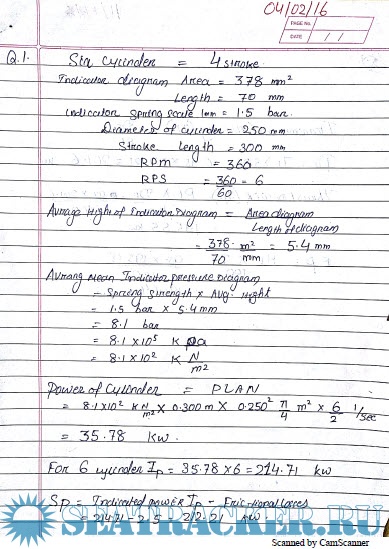 04/02/16
PAGE NO.
DATE / /
Q.1. Six cylinder = 4 stroke
Indicator diagram Area = 378 mm²
Length = 70 mm
indicator spring scale 1mm = 1.5 bar
Diameter of cylinder = 250 mm
Stroke Length = 300 mm
RPM = 360
RPS = 360/60 = 6
Average Hight of Indicator Diagram = Area diagram / Length of diagram
= 378/70 m²/mm = 5.4 mm
Avrang Mean Indicator pressure Diagram
= Spring Strength x Avg. Hight
= 1.5 bar x 5.4 mm
= 8.1 bar
= 8.1 x 10⁵ K Pa
= 8.1 x 10² K N/m²
Power of Cylinder = PLAN
= 8.1 x 10² K N/m² x 0.300 m x 0.250² π/4 m² x 6/2 1/sec
= 35.78 Kw.
For 6 cylinder Ip = 35.78 x 6 = 214.71 kw
SP = Indicated power Ip - Frictional losses
= 214.71 - 2.5 = 212.21 KW
SEATRACKER.RU
Scanned by CamScanner